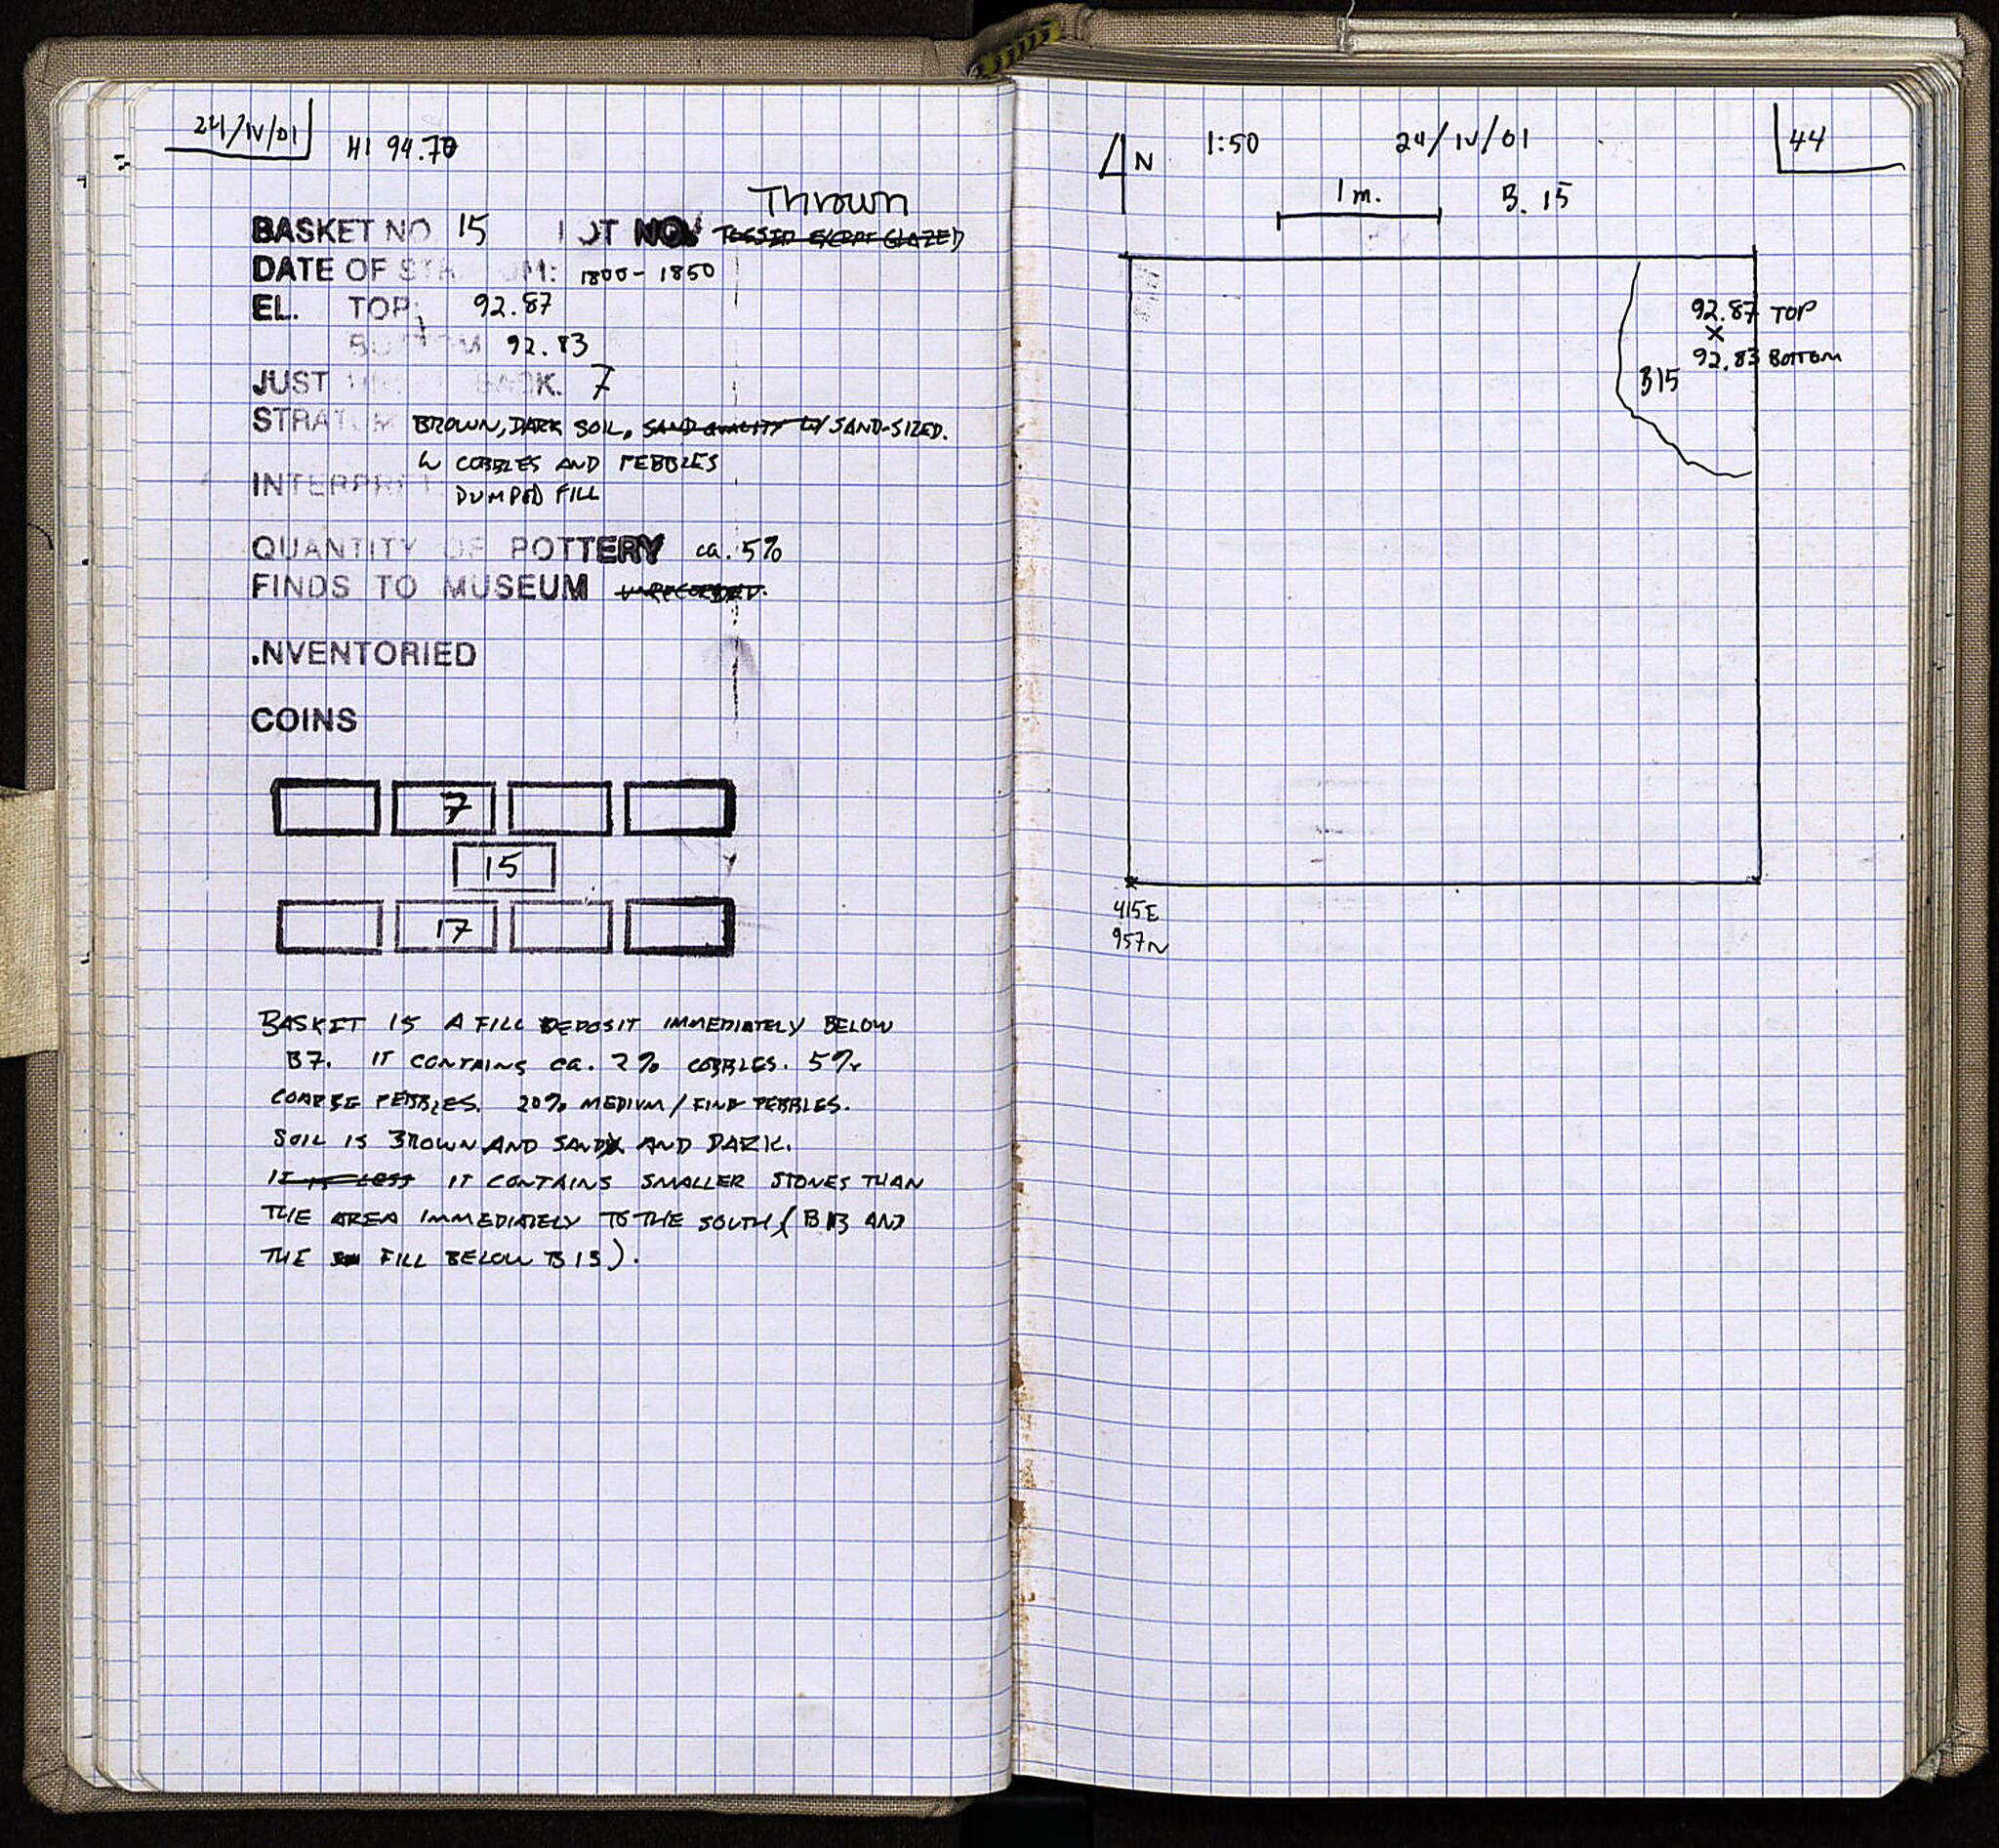 24/IV/01
HI 94.70
Thrown
BASKET NO. 15 LOT NO. TOSSED EXCEPT GLAZED
DATE OF STRATUM: 1800-1850
EL. TOP: 92.87
BOTTOM 92.83
JUST UNDER BASK. 7
STRATUM BROWN, DARK SOIL, SAND QUALITY W/ SAND-SIZED.
W COBBLES AND PEBBLES
INTERPRET. DUMPED FILL
QUANTITY OF POTTERY ca. 5%
FINDS TO MUSEUM UNRECORDED.
.NVENTORIED
COINS
7
15
17
BASKET 15 A FILL DEPOSIT IMMEDIATELY BELOW
B7. IT CONTAINS ca. 2% COBBLES. 5%
COARSE PEBBLES. 20% MEDIUM/FINE PEBBLES.
SOIL IS BROWN AND SANDY AND DARK.
IT IS LESS IT CONTAINS SMALLER STONES THAN
THE AREA IMMEDIATELY TO THE SOUTH (B13 AND
THE FILL BELOW B13).
N 1:50 24/IV/01 44
1 m. B. 15
92.87 TOP
92.83 BOTTOM
B15
415E
957N